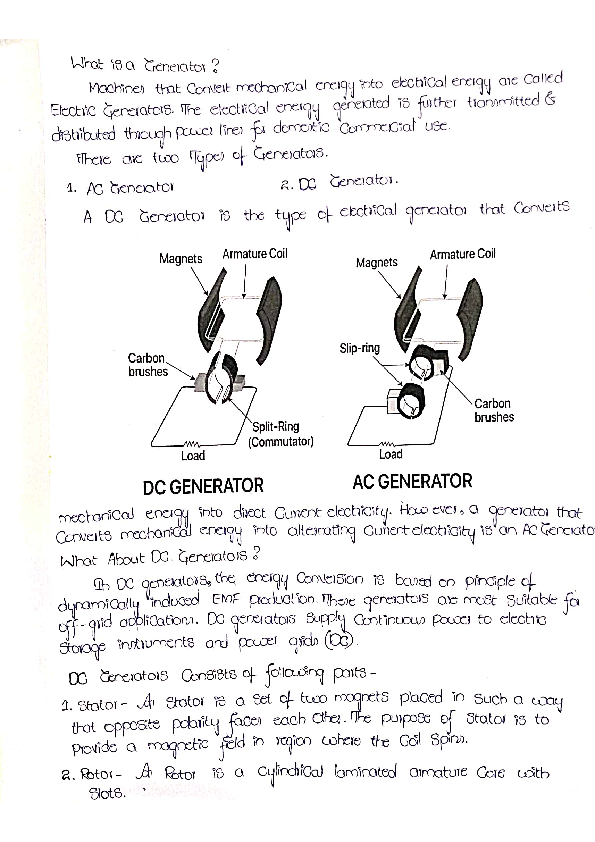 What is a Generator?
Machines that Convert mechanical energy into electrical energy are Called
Electric Generators. The electrical energy generated is further transmitted &
distributed through power lines for domestic Commercial use.
There are two Types of Generators.
1. AC Generator 2. DC Generator.
A DC Generator is the type of electrical generator that Converts
Magnets Armature Coil
Carbon brushes
Split-Ring (Commutator)
Load
DC GENERATOR
Magnets Armature Coil
Slip-ring
Carbon brushes
Load
AC GENERATOR
mechanical energy into direct Current electricity. How ever, a generator that
Converts mechanical energy into alternating Current electricity is an AC Generato
What About DC. Generators?
In DC generators, the energy Conversion is based on principle of
dynamically induced EMF production. These generators are most Suitable for
off-grid applications. DC generators Supply Continuous power to electric
Storage instruments and power grids (DC).
DC Generators Consists of following parts -
1. Stator - A Stator is a Set of two magnets placed in Such a way
that opposite polarity faces each other. The purpose of Stator is to
Provide a magnetic field in region where the Coil Spins.
2. Rotor - A Rotor is a Cylindrical laminated armature Core with
Slots.